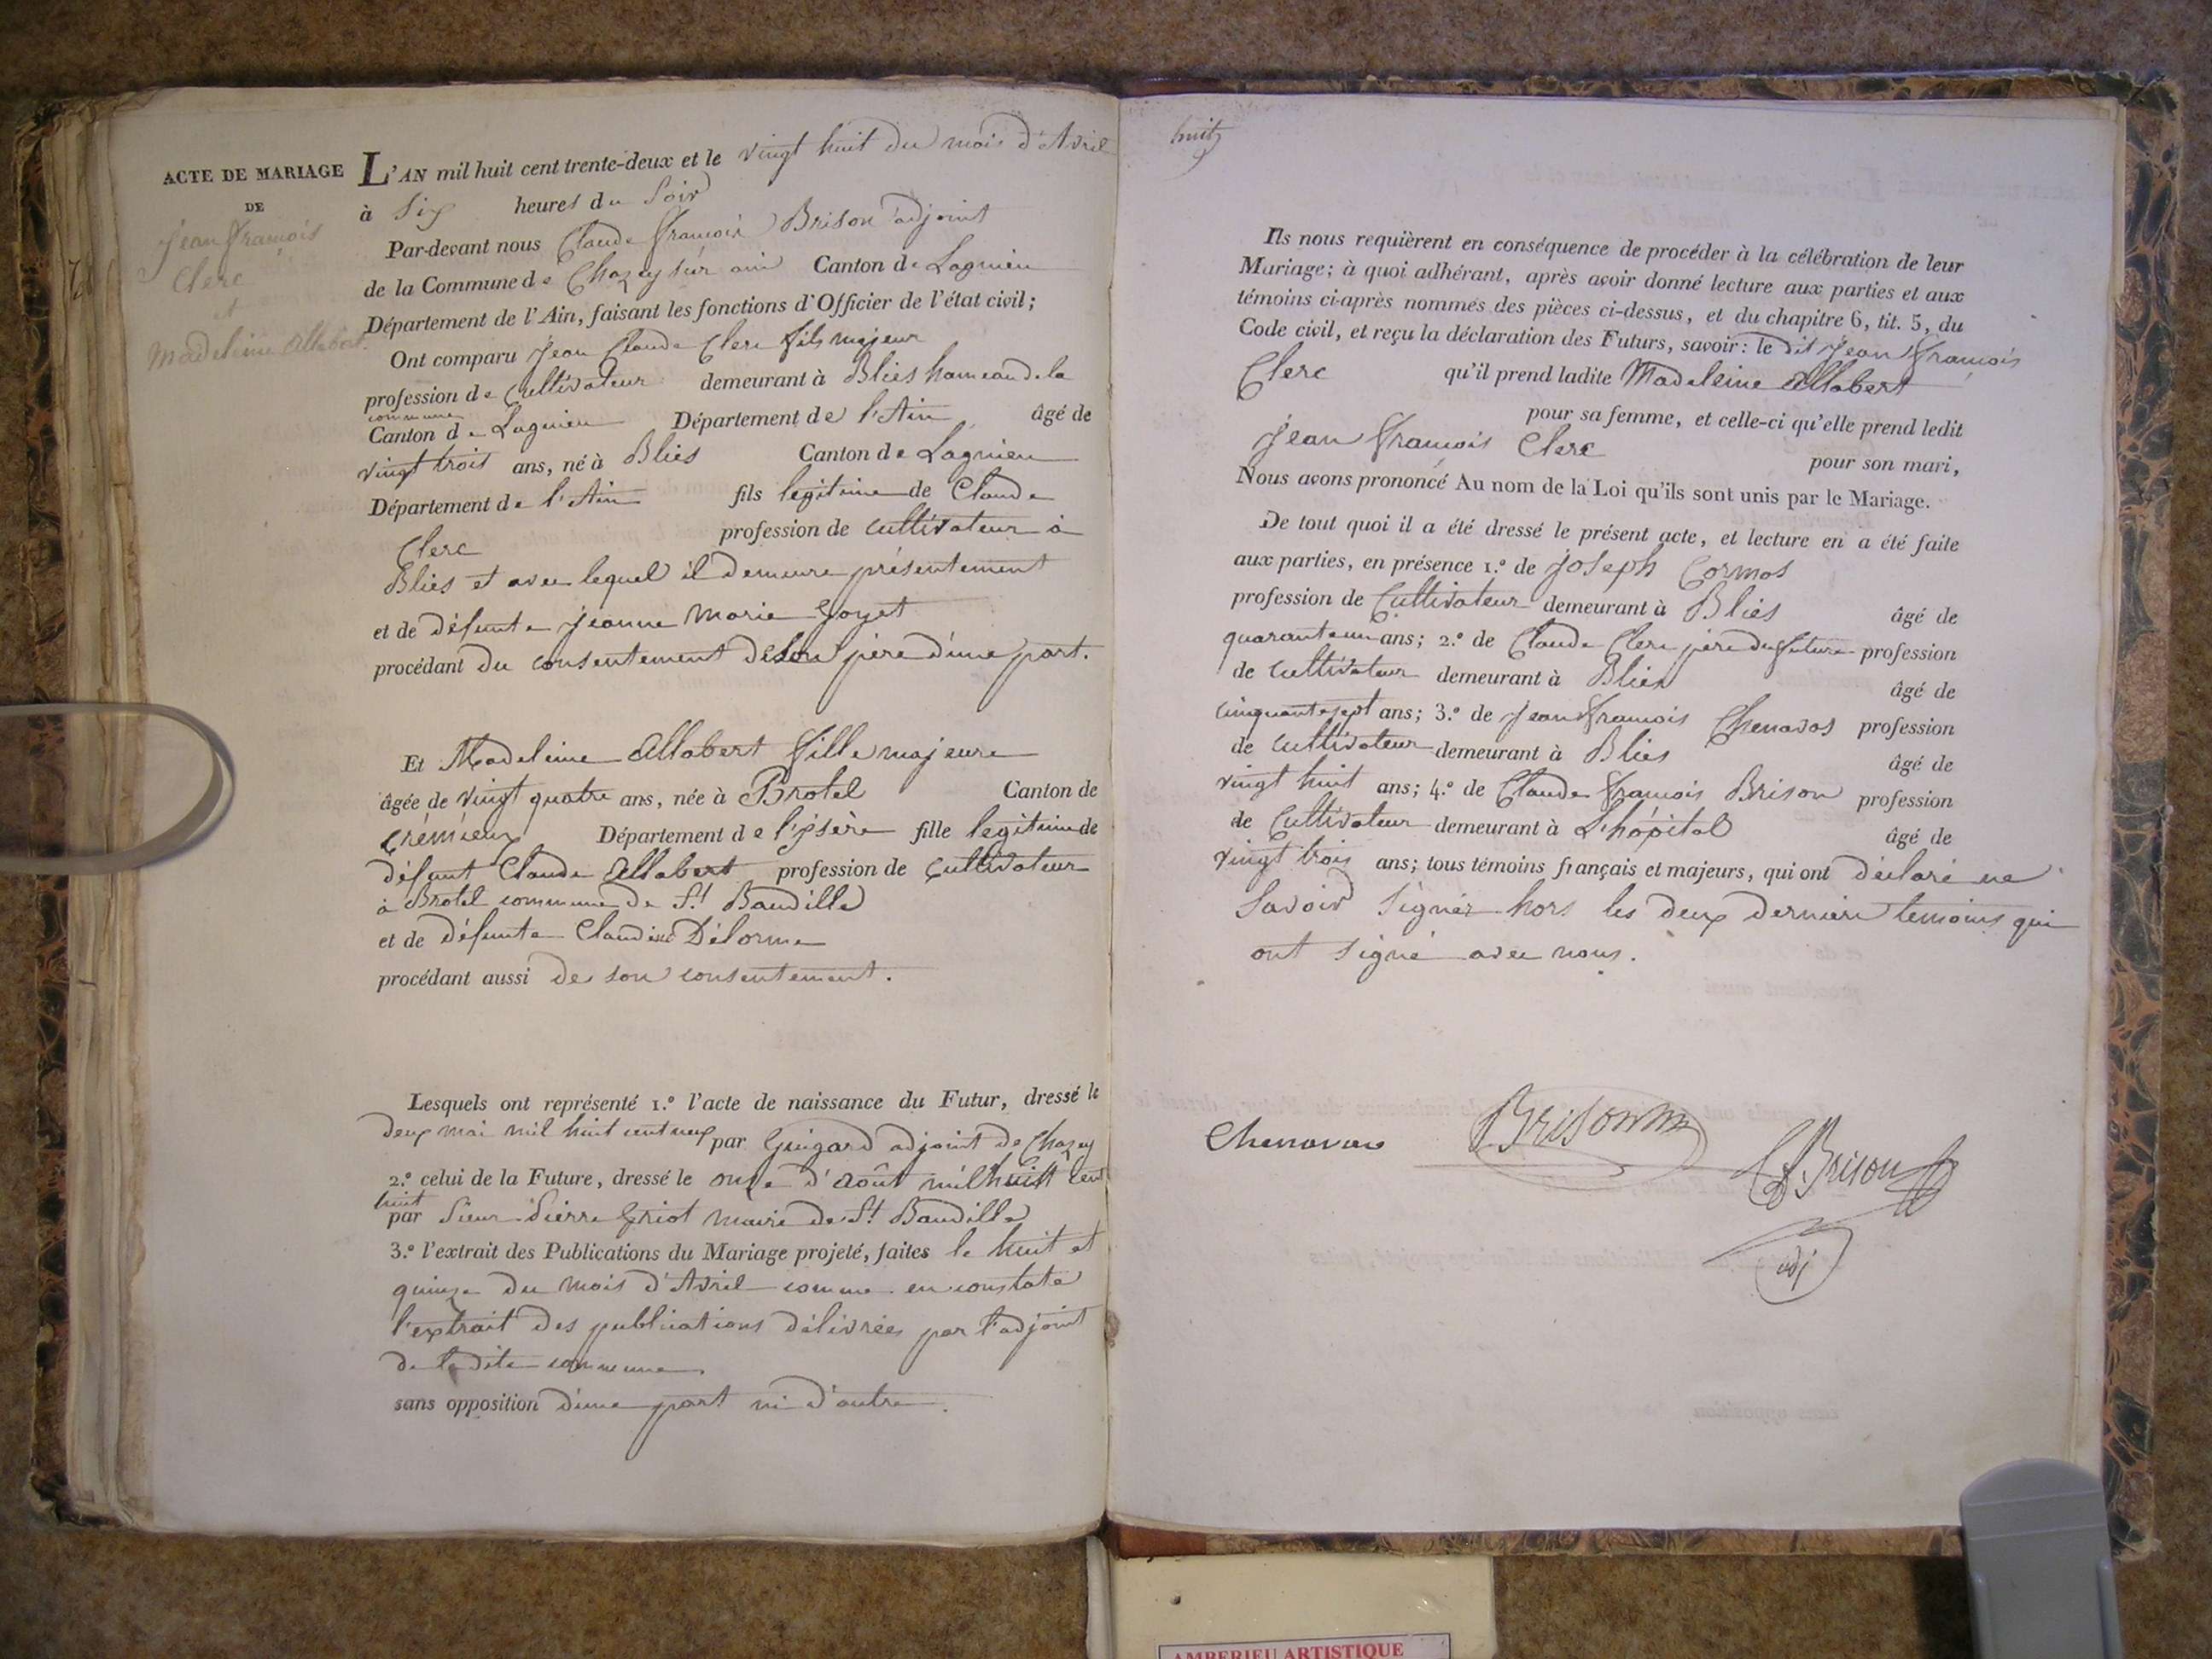 ACTE DE MARIAGE
DE
Jean François
Clerc
et
Madeleine Allabert
L'AN mil huit cent trente-deux et le vingt huit du mois d'Avril
à Six heures du Soir
Par-devant nous Claude François Brison adjoint
de la Commune de Chazey sur ain Canton de Lagnieu
Département de l'Ain, faisant les fonctions d'Officier de l'état civil;
Ont comparu Jean Claude Clerc fils majeur
profession de Cultivateur demeurant à Blies hameau de la
commune
Canton de Lagnieu Département de l'Ain âgé de
vingt trois ans, né à Blies Canton de Lagnieu
Département de l'Ain fils legitime de Claude
Clerc profession de cultivateur à
Blies et avec lequel il demeure présentement
et de défunte Jeanne Marie Goyet
procédant du consentement de son père d'une part.
Et Madeleine Allabert fille majeure
âgée de vingt quatre ans, née à Brotel Canton de
Crémieux Département de l'isère fille legitime de
défunt Claude Allabert profession de Cultivateur
à Brotel commune de St Baudille
et de défunte Claudine Délorme
procédant aussi de son consentement.
Lesquels ont représenté 1.º l'acte de naissance du Futur, dressé le
deux mai mil huit cent neuf par Guigard adjoint de Chazey
2.º celui de la Future, dressé le onze d'août mil huit cent
huit
par Sieur Pierre Griot maire de St Baudille
3.º l'extrait des Publications du Mariage projeté, faites le huit et
quinze du mois d'Avril comme en constate
l'extrait des publications délivrées par l'adjoint
de la dite commune
sans opposition d'une part ni d'autre.
huit
Ils nous requièrent en conséquence de procéder à la célébration de leur
Mariage; à quoi adhérant, après avoir donné lecture aux parties et aux
témoins ci-après nommés des pièces ci-dessus, et du chapitre 6, tit. 5, du
Code civil, et reçu la déclaration des Futurs, savoir: le dit Jean François
Clerc qu'il prend ladite Madeleine Allabert
pour sa femme, et celle-ci qu'elle prend ledit
Jean François Clerc pour son mari,
Nous avons prononcé Au nom de la Loi qu'ils sont unis par le Mariage.
De tout quoi il a été dressé le présent acte, et lecture en a été faite
aux parties, en présence 1.º de Joseph Cormos
profession de Cultivateur demeurant à Blies âgé de
quarante un ans; 2.º de Claude Clerc père du future profession
de cultivateur demeurant à Blies âgé de
cinquante sept ans; 3.º de Jean François Chenavas profession
de cultivateur demeurant à Blies âgé de
vingt huit ans; 4.º de Claude François Brison profession
de Cultivateur demeurant à L'hôpital âgé de
vingt trois ans; tous témoins français et majeurs, qui ont déclaré ne
Savoir Signer hors les deux derniere temoins qui
ont signé avec nous.
Chenavas Brison Brison
adj
AMBERIEU ARTISTIQUE